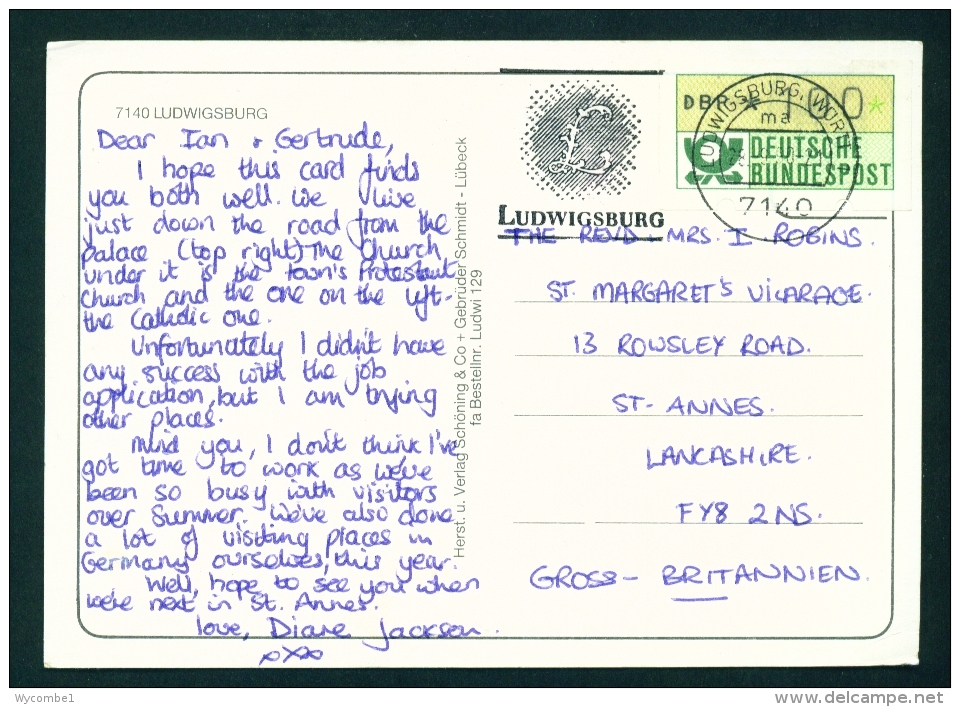 7140 LUDWIGSBURG
Dear Ian + Gertrude,
I hope this card finds
you both well. We live
just down the road from the
palace (top right) The Church
under it is the town's Protestant
Church and the one on the left-
the Catholic one.
Unfortunately I didn't have
any success with the job
application, but I am trying
other places.
Mind you, I don't think I've
got time to work as we've
been so busy with visitors
over Summer. We've also done
a lot of visiting places in
Germany ourselves, this year.
Well, hope to see you when
we're next in St. Annes.
love, Diane Jackson.
xxx
Herst. u. Verlag Schöning & Co + Gebrüder Schmidt - Lübeck
fa Bestellnr. Ludwi 129
L
LUDWIGSBURG
DBP
100
DEUTSCHE
BUNDESPOST
LUDWIGSBURG, WÜRTT
ma
7140
THE REVD. MRS. I ROBINS.
ST. MARGARET'S VICARAGE.
13 ROWSLEY ROAD.
ST- ANNES.
LANCASHIRE.
FY8 2NS.
GROSS- BRITANNIEN.
Wycombe1
www.delcampe.net